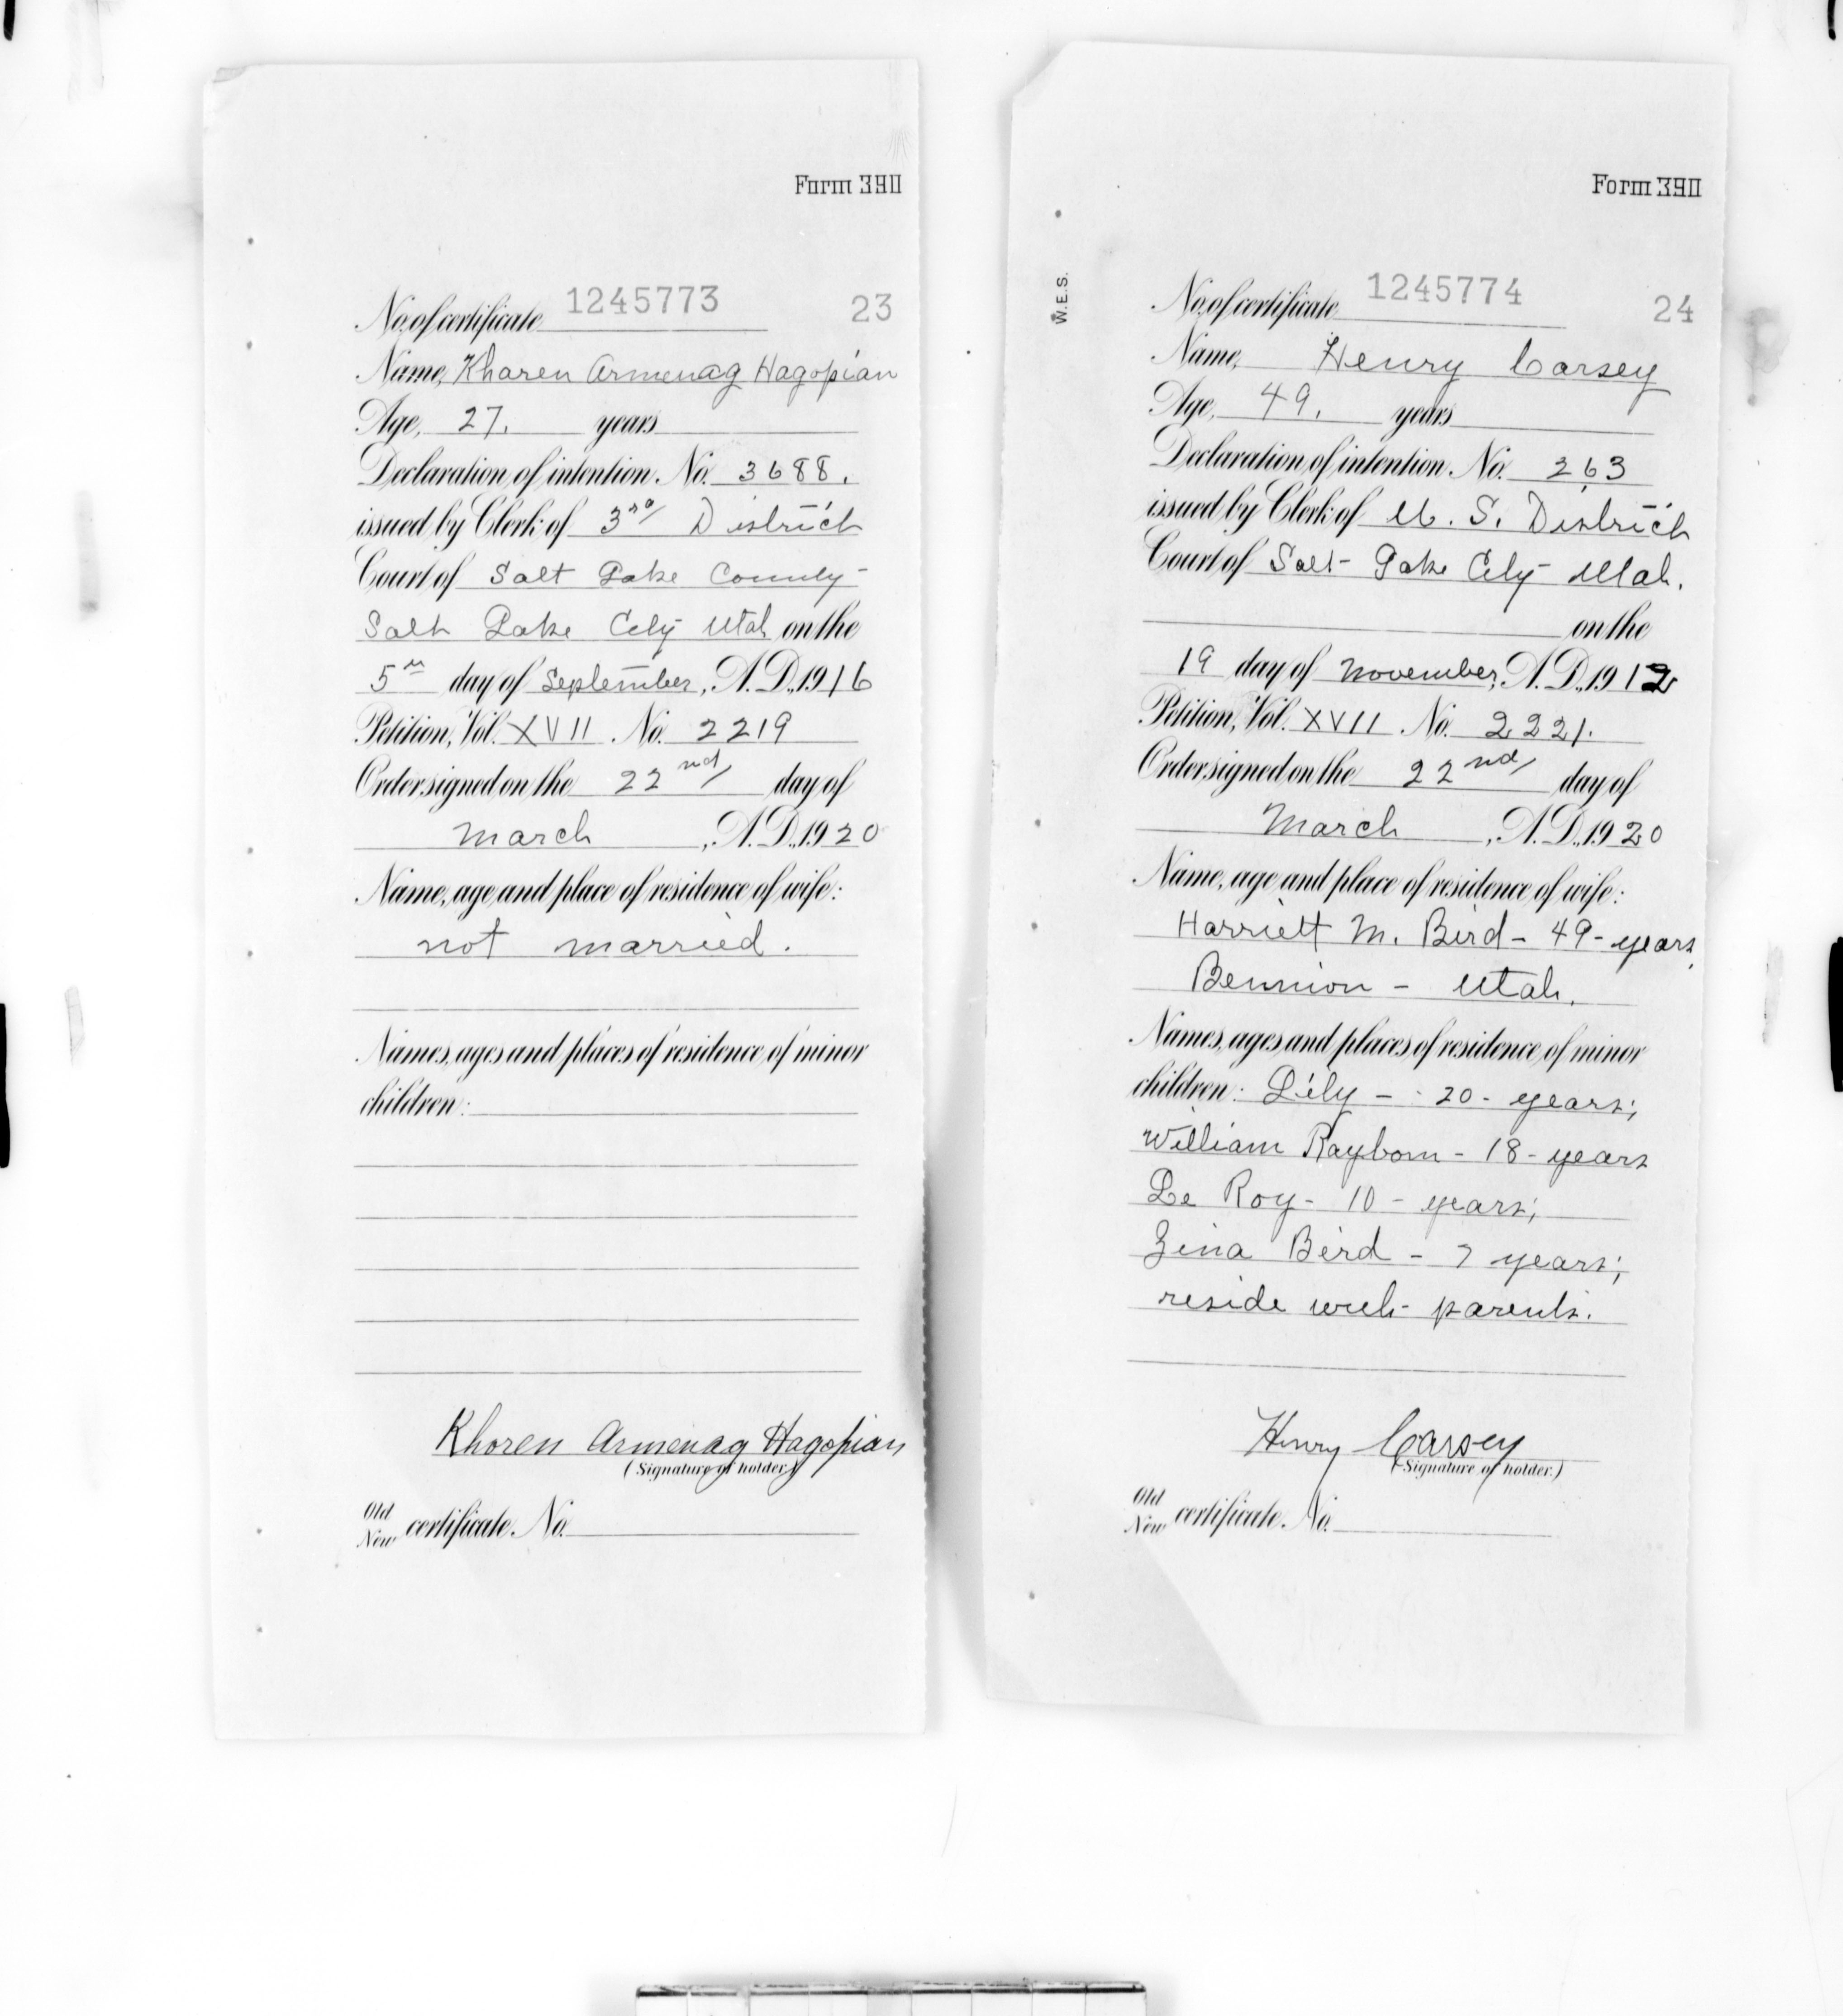 Form 390
No. of certificate 1245773 23
Name, Kharen Armenag Hagopian
Age, 27. years
Declaration of intention, No. 3688.
issued by Clerk of 3rd District
Court of Salt Lake County
Salt Lake City Utah on the
5th day of September, A.D., 1916
Petition, Vol. XVII No. 2219
Order signed on the 22nd day of
March, A.D., 1920
Name, age and place of residence of wife:
not married.
Names, ages and places of residence of minor
children:
Khoren Armenag Hagopian
(Signature of holder.)
Old
New certificate, No.
Form 390
W.E.S.
No. of certificate 1245774 24
Name, Henry Carsey
Age, 49. years
Declaration of intention, No. 263
issued by Clerk of U. S. District
Court of Salt Lake City Utah.
on the
19 day of November, A.D., 1912
Petition, Vol. XVII No. 2221.
Order signed on the 22nd day of
March, A.D., 1920
Name, age and place of residence of wife:
Harriett M. Bird - 49 - years
Bennion - Utah.
Names, ages and places of residence of minor
children: Lily - 20 - years;
William Rayborn - 18 - years
Le Roy - 10 - years;
Zina Bird - 7 years;
reside with parents.
Henry Carsey
(Signature of holder.)
Old
New certificate, No.